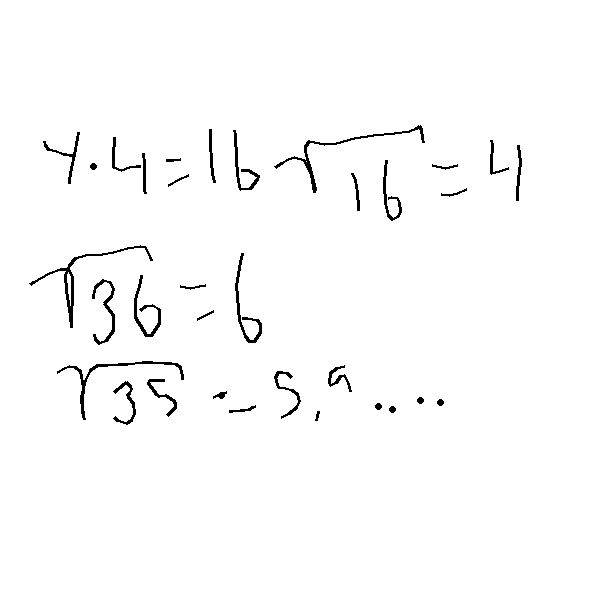 4.4=16 √16=4
√36=6
√35=5,9....